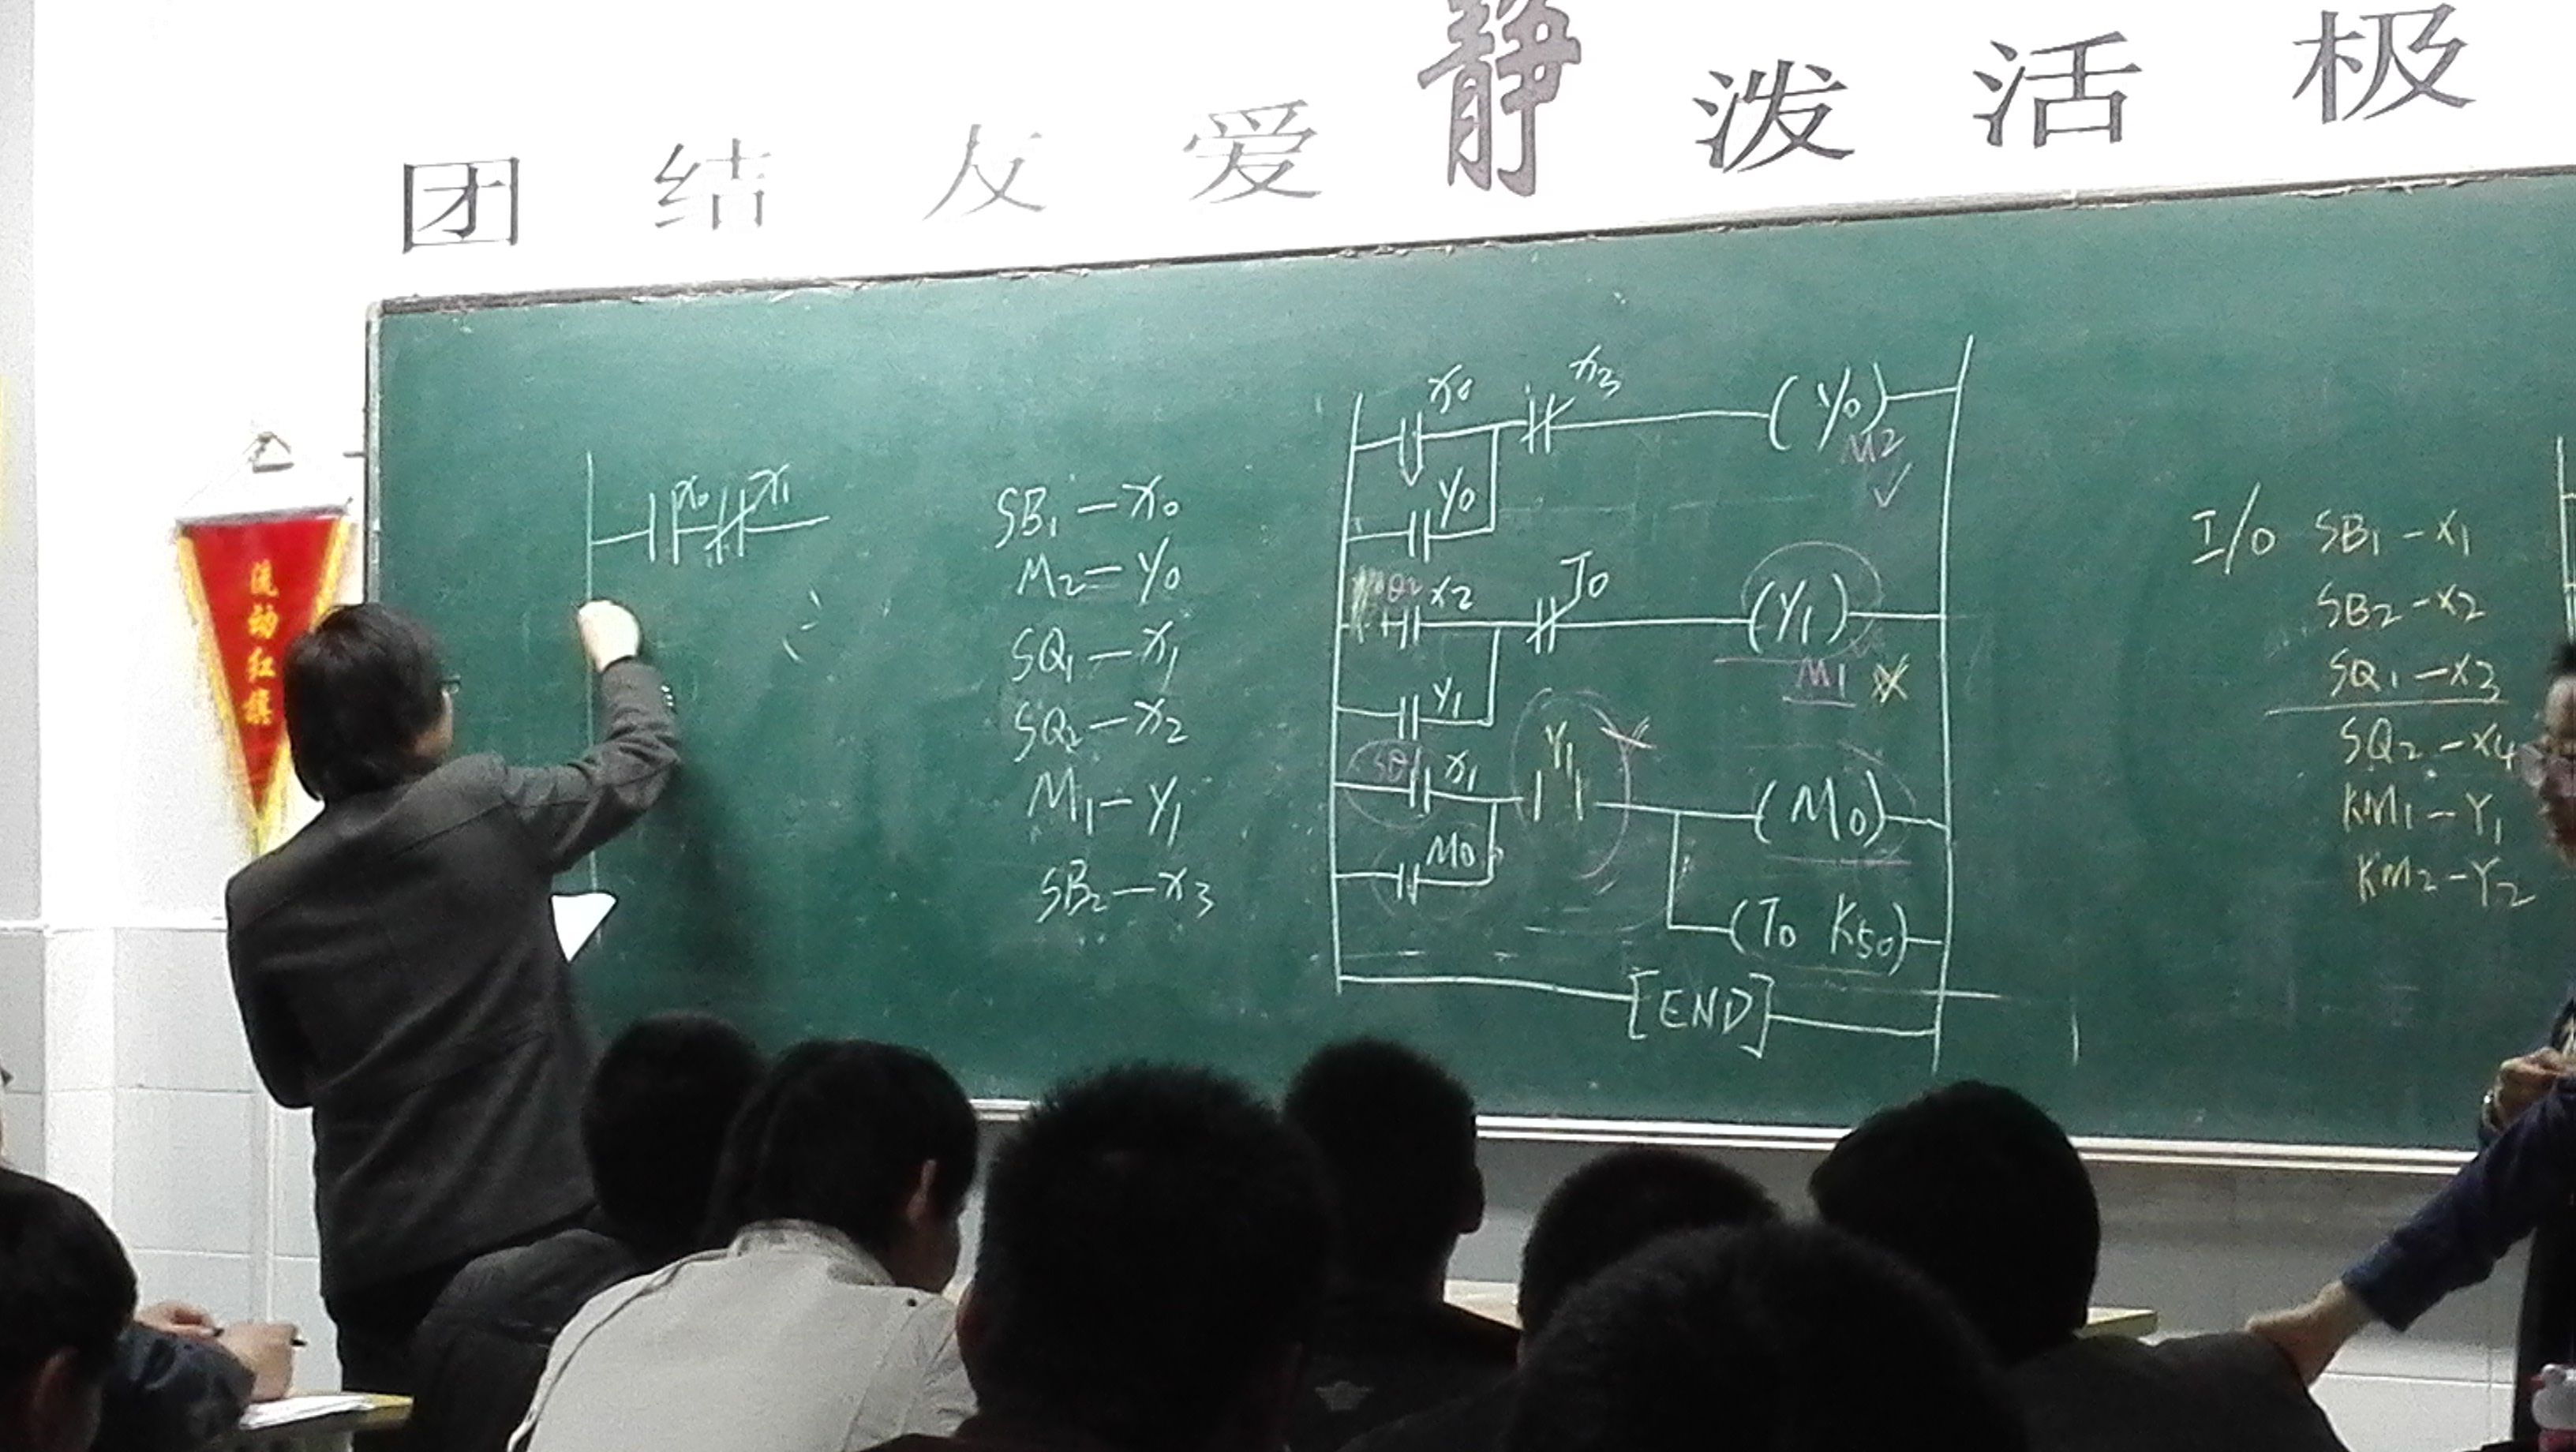 团 结 友 爱 静 泼 活 极
流动红旗
X0 X1
SB1 — X0
M2 — Y0
SQ1 — X1
SQ2 — X2
M1 — Y1
SB2 — X3
X0 X3 (Y0)
M2
Y0
X2 T0 (Y1)
M1
Y1
X1 Y1 (M0)
M0
(T0 K50)
[END]
I/O SB1 - X1
SB2 - X2
SQ1 - X3
SQ2 - X4
KM1 - Y1
KM2 - Y2